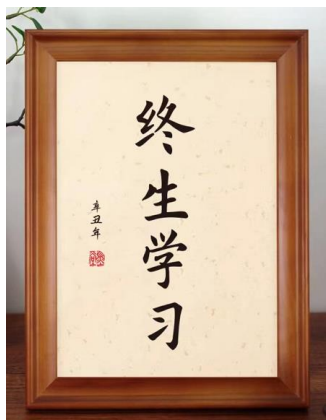 终生学习
辛丑年